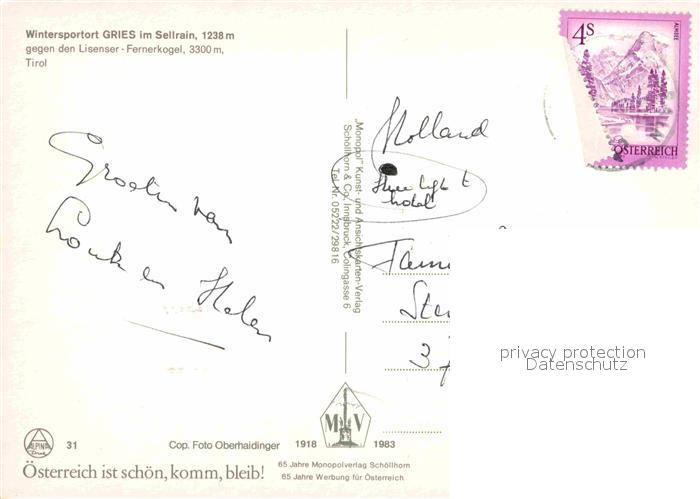 Wintersportort GRIES im Sellrain, 1238 m
gegen den Lisenser-Fernerkogel, 3300 m,
Tirol
Groeten van
en Helen
Holland
hotel
3
"Monopol" Kunst- und Ansichtskarten-Verlag
Schöllhorn & Co, Innsbruck, Colingasse 6
Tel.-Nr. 05222/29816
4S
ALMSEE
ÖSTERREICH
privacy protection
Datenschutz
M V
1918 1983
65 Jahre Monopolverlag Schöllhorn
65 Jahre Werbung für Österreich
ALPINA
Druck
31
Cop. Foto Oberhaidinger
Österreich ist schön, komm, bleib!